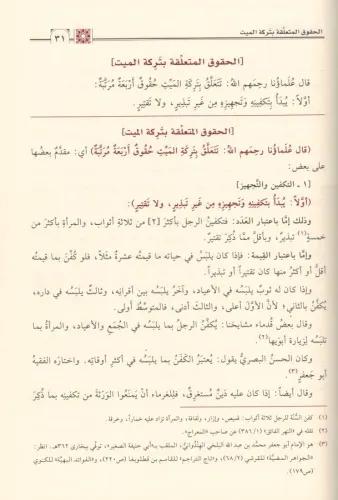 الحقوق المتعلّقة بتركة الميت
٣١
[الحقوق المتعلّقة بتَرِكة الميت]
قال عُلَماؤُنا رحِمَهم اللهُ: تَتَعَلَّقُ بِتَرِكةِ المَيِّتِ حُقُوقٌ أَرْبَعَةٌ مُرَتَّبَةٌ:
أوّلاً: يُبدَأُ بِتَكفِينِهِ وَتَجهِيزِهِ مِن غَيرِ تَبذِيرٍ، ولا تَقتِيرٍ.
[الحقوق المتعلّقة بتَركة الميت]
(قال عُلَماؤنا رحمهم اللهُ: تَتَعَلَّقُ بِتَرِكةِ المَيِّتِ حُقُوقٌ أَرْبَعَةٌ مُرَتَّبَةٌ) أي: مقدَّمٌ بعضُها
على بعض:
[١ ـ التكفين والتَّجهيز]
(أوّلاً: يُبدَأُ بِتَكفِينِهِ وَتَجهِيزِهِ مِن غَيرِ تَبذِيرٍ، ولا تَقتِيرٍ):
وذلك إمّا باعتبار العَدَد: فتكفينُ الرجلِ بأكثرَ [٢] من ثلاثةِ أثواب، والمرأةِ بأكثرَ من
خمسةٍ(١) تبذيرٌ، وبأقلَّ ممّا ذُكِرَ تقتيرٌ.
وإمّا باعتبار القِيمة: فإذا كان يلبَسُ في حياته ما قيمتُه عشرةٌ مثلاً، فلو كُفِّنَ بما قيمتُه
أقلُّ أو أكثرُ منها كان تقتيراً أو تبذيراً.
وإذا كان له ثوبٌ يلبَسُه في الأعياد، وآخَرُ يلبَسُه بين أقرانِه، وثالثٌ يلبَسُه في داره،
يُكفَّنُ بالثاني؛ لأنَّ الأوّلَ أعلى، والثالثَ أدنى، فالمتوسِّطُ أَولى.
وقال بعضُ قُدماء مشايخنا: يُكفَّنُ الرجلُ بما يلبَسُه في الجُمَع والأعياد، والمرأةُ بما
تلبَسُه لِزيارة أبوَيها(٢).
وكان الحسنُ البصريُّ يقول: يُعتبَرُ الكَفَنُ بما يلبَسُه في أكثرِ أوقاتِه. واختارَه الفقيهُ
أبو جَعفرٍ(٣).
وقال أيضاً: إذا كان عليه دَينٌ مُستغرِقٌ، فلِلغُرماء أنْ يَمنَعُوا الوَرَثةَ من تكفينِه بما ذُكِرَ
(١) كفن السُّنَّة للرجل ثلاثة أثواب: قميص، وإزار، ولفافة، والمرأة تزاد عليه خماراً، وخرقة.
(٢) نقله في «النهر الفائق» (١/٣٨٦) عن صاحب «المعراج».
(٣) هو الإمام أبو جعفر محمَّد بن عبد الله البلخي الهِنْدُوانيُّ، الملقب بـ«أبي حنيفة الصغير». توفّي ببخارى ٣٦٢هـ. انظر:
«الجواهر المضيّة» للقرشي (٢/٦٨)، و«تاج التراجم» للقاسم بن قطلوبغا (ص٢٢٠)، و«الفوائد البهيَّة» للكنوي
(ص١٧٩).